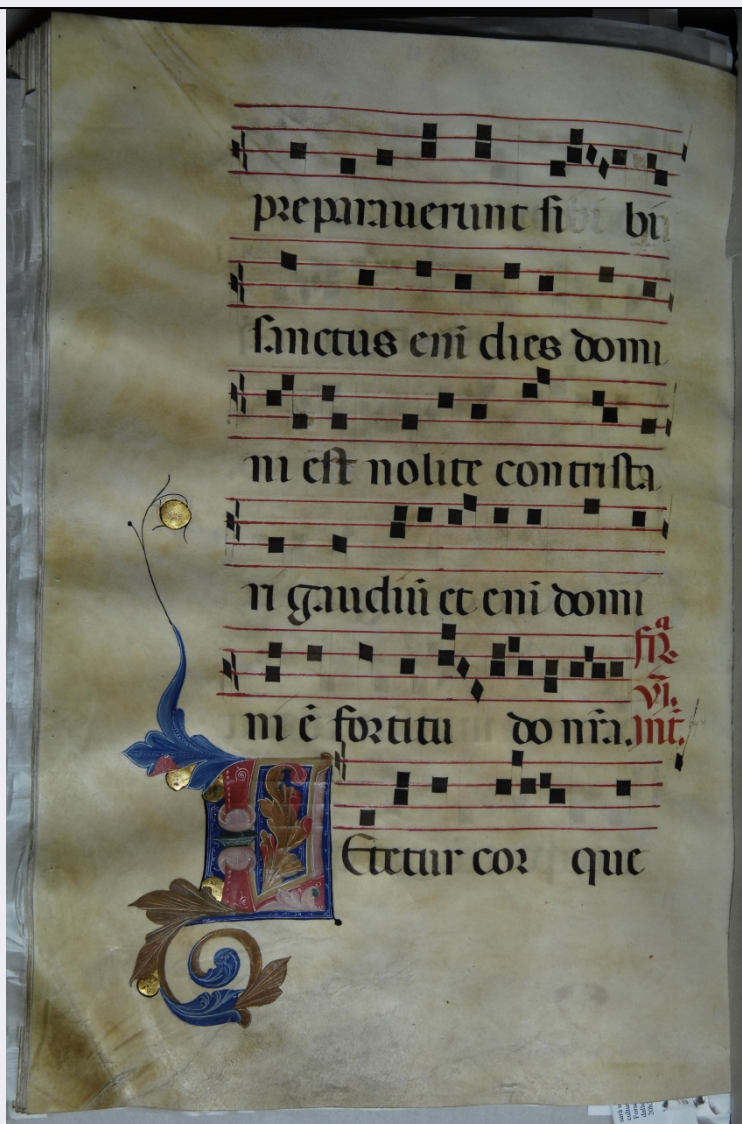 preparauerunt si bi
sanctus eni dies domi
ni est nolite contrista
ri gaudiū et eni domi
ni ē fortitu do nr̄a. fiR̄ª VĪ. Int̄.
LEtetur cor que